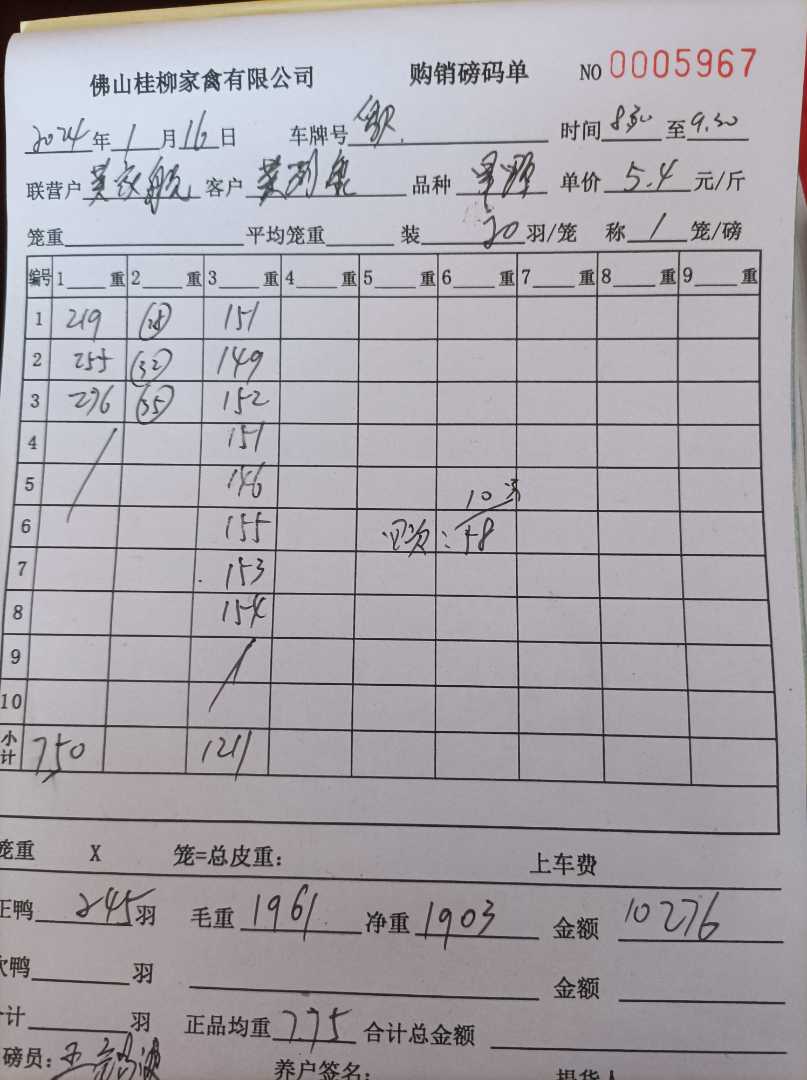 佛山桂柳家禽有限公司 购销磅码单 NO 0005967
2024年1月16日 车牌号 时间8.30至9.30
联营户 客户 品种 单价5.4元/斤
笼重 平均笼重 装20羽/笼 称1笼/磅
编号 1 重 2 重 3 重 4 重 5 重 6 重 7 重 8 重 9 重
1 219 28 151
2 255 32 149
3 276 35 152
4 151
5 146 10
6 155 :58
7 153
8 154
9
10
小计 750 1211
笼重 X 笼=总皮重: 上车费
正鸭245羽 毛重1961 净重1903 金额10276
次鸭 羽 金额
计 羽 正品均重7.75 合计总金额
磅员: 养户签名: